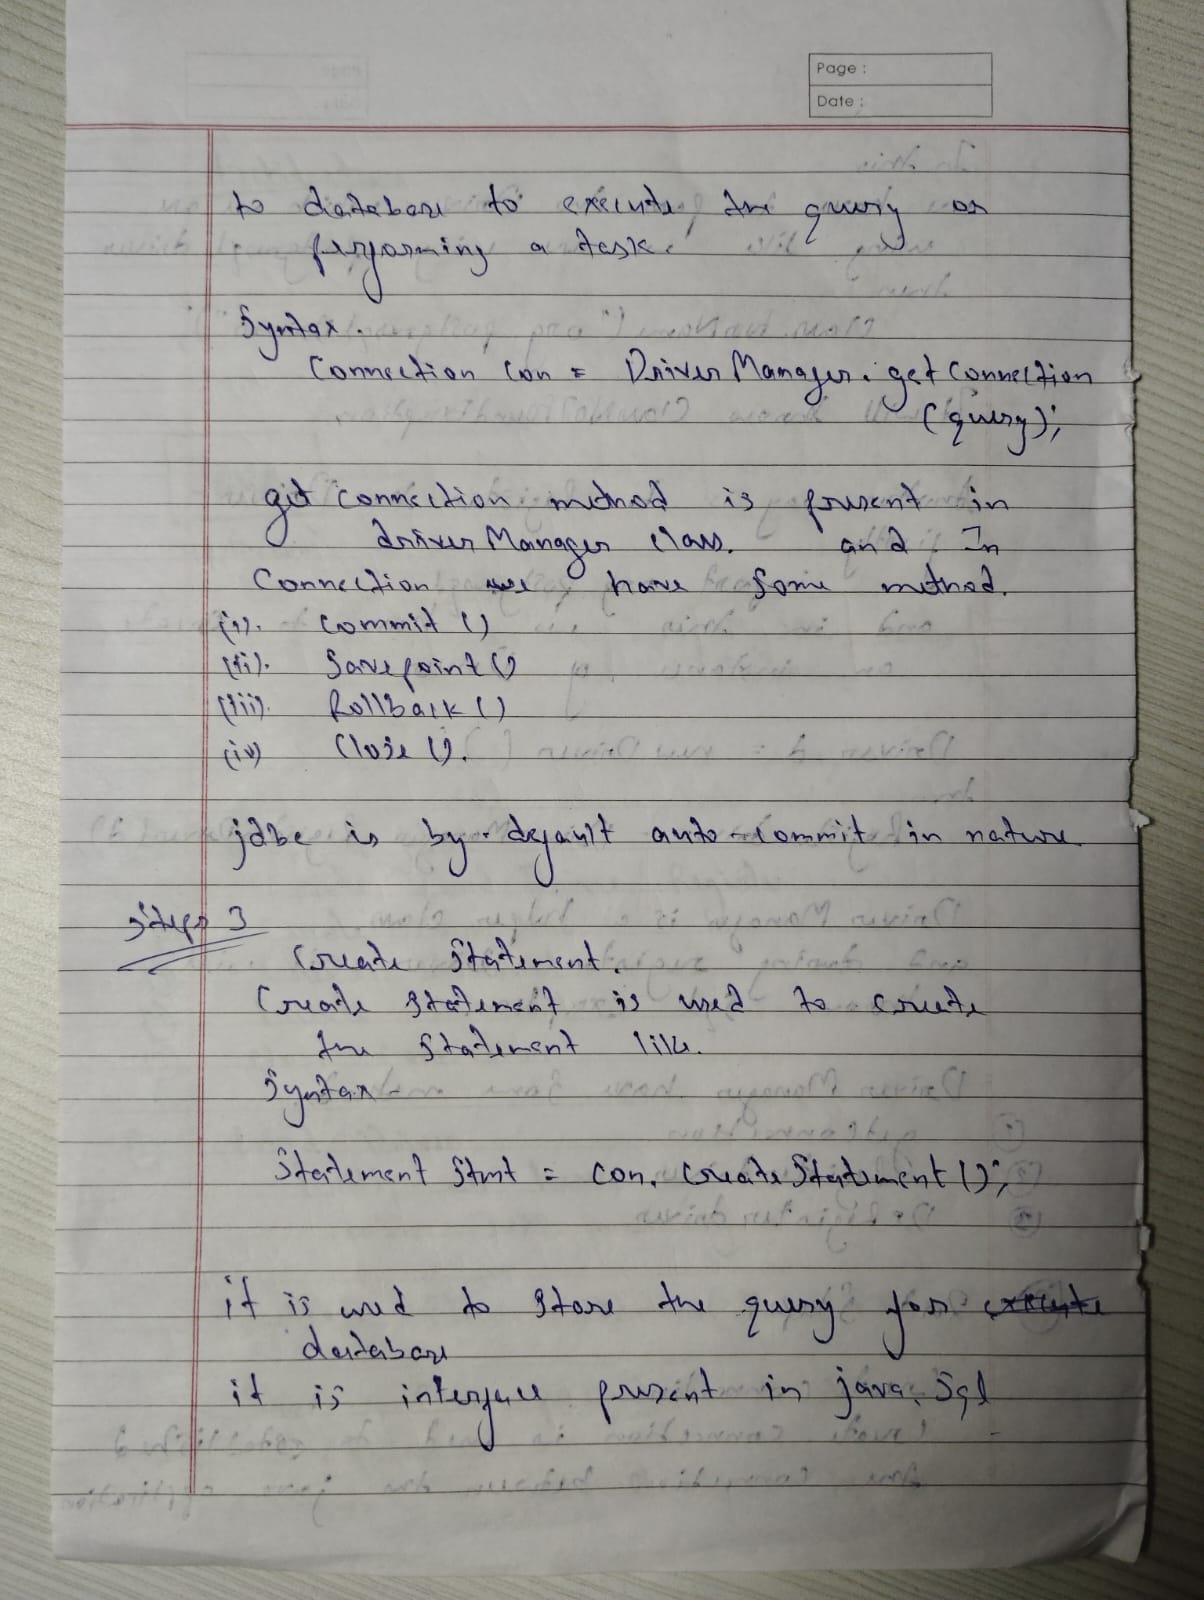 Page :
Date :
to database to execute the query or
performing a task.
Syntax.
Connection Con = DriverManager. get Connection
(query);
get Connection method is present in
driver Manager class. and In
Connection we have some method.
(i). Commit ()
(ii). Savepoint ()
(iii). Rollback ()
(iv) Close ().
jdbc is by-default auto-commit in nature
Step 3
Create Statement.
Create Statement is used to create
the Statement like.
Syntax -
Statement Stmt = con. Create Statement ();
it is used to store the query for execute
database
it is interface present in java. Sql